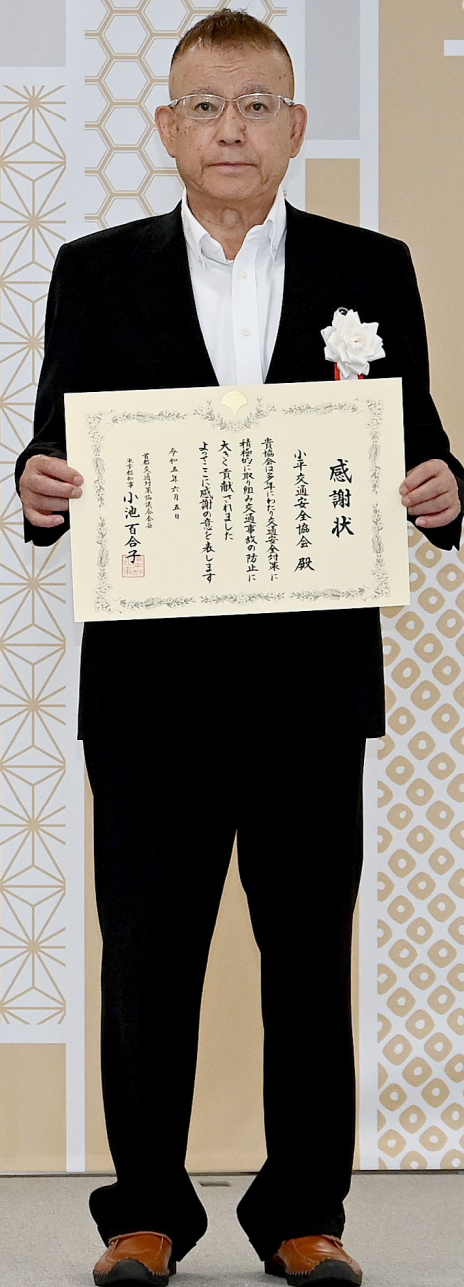 感謝状
小平交通安全協会 殿
貴協会は多年にわたり交通安全対策に
積極的に取り組み交通事故の防止に
大きく貢献されました
よってここに感謝の意を表します
令和五年六月五日
首都交通対策協議会会長
東京都知事 小池百合子